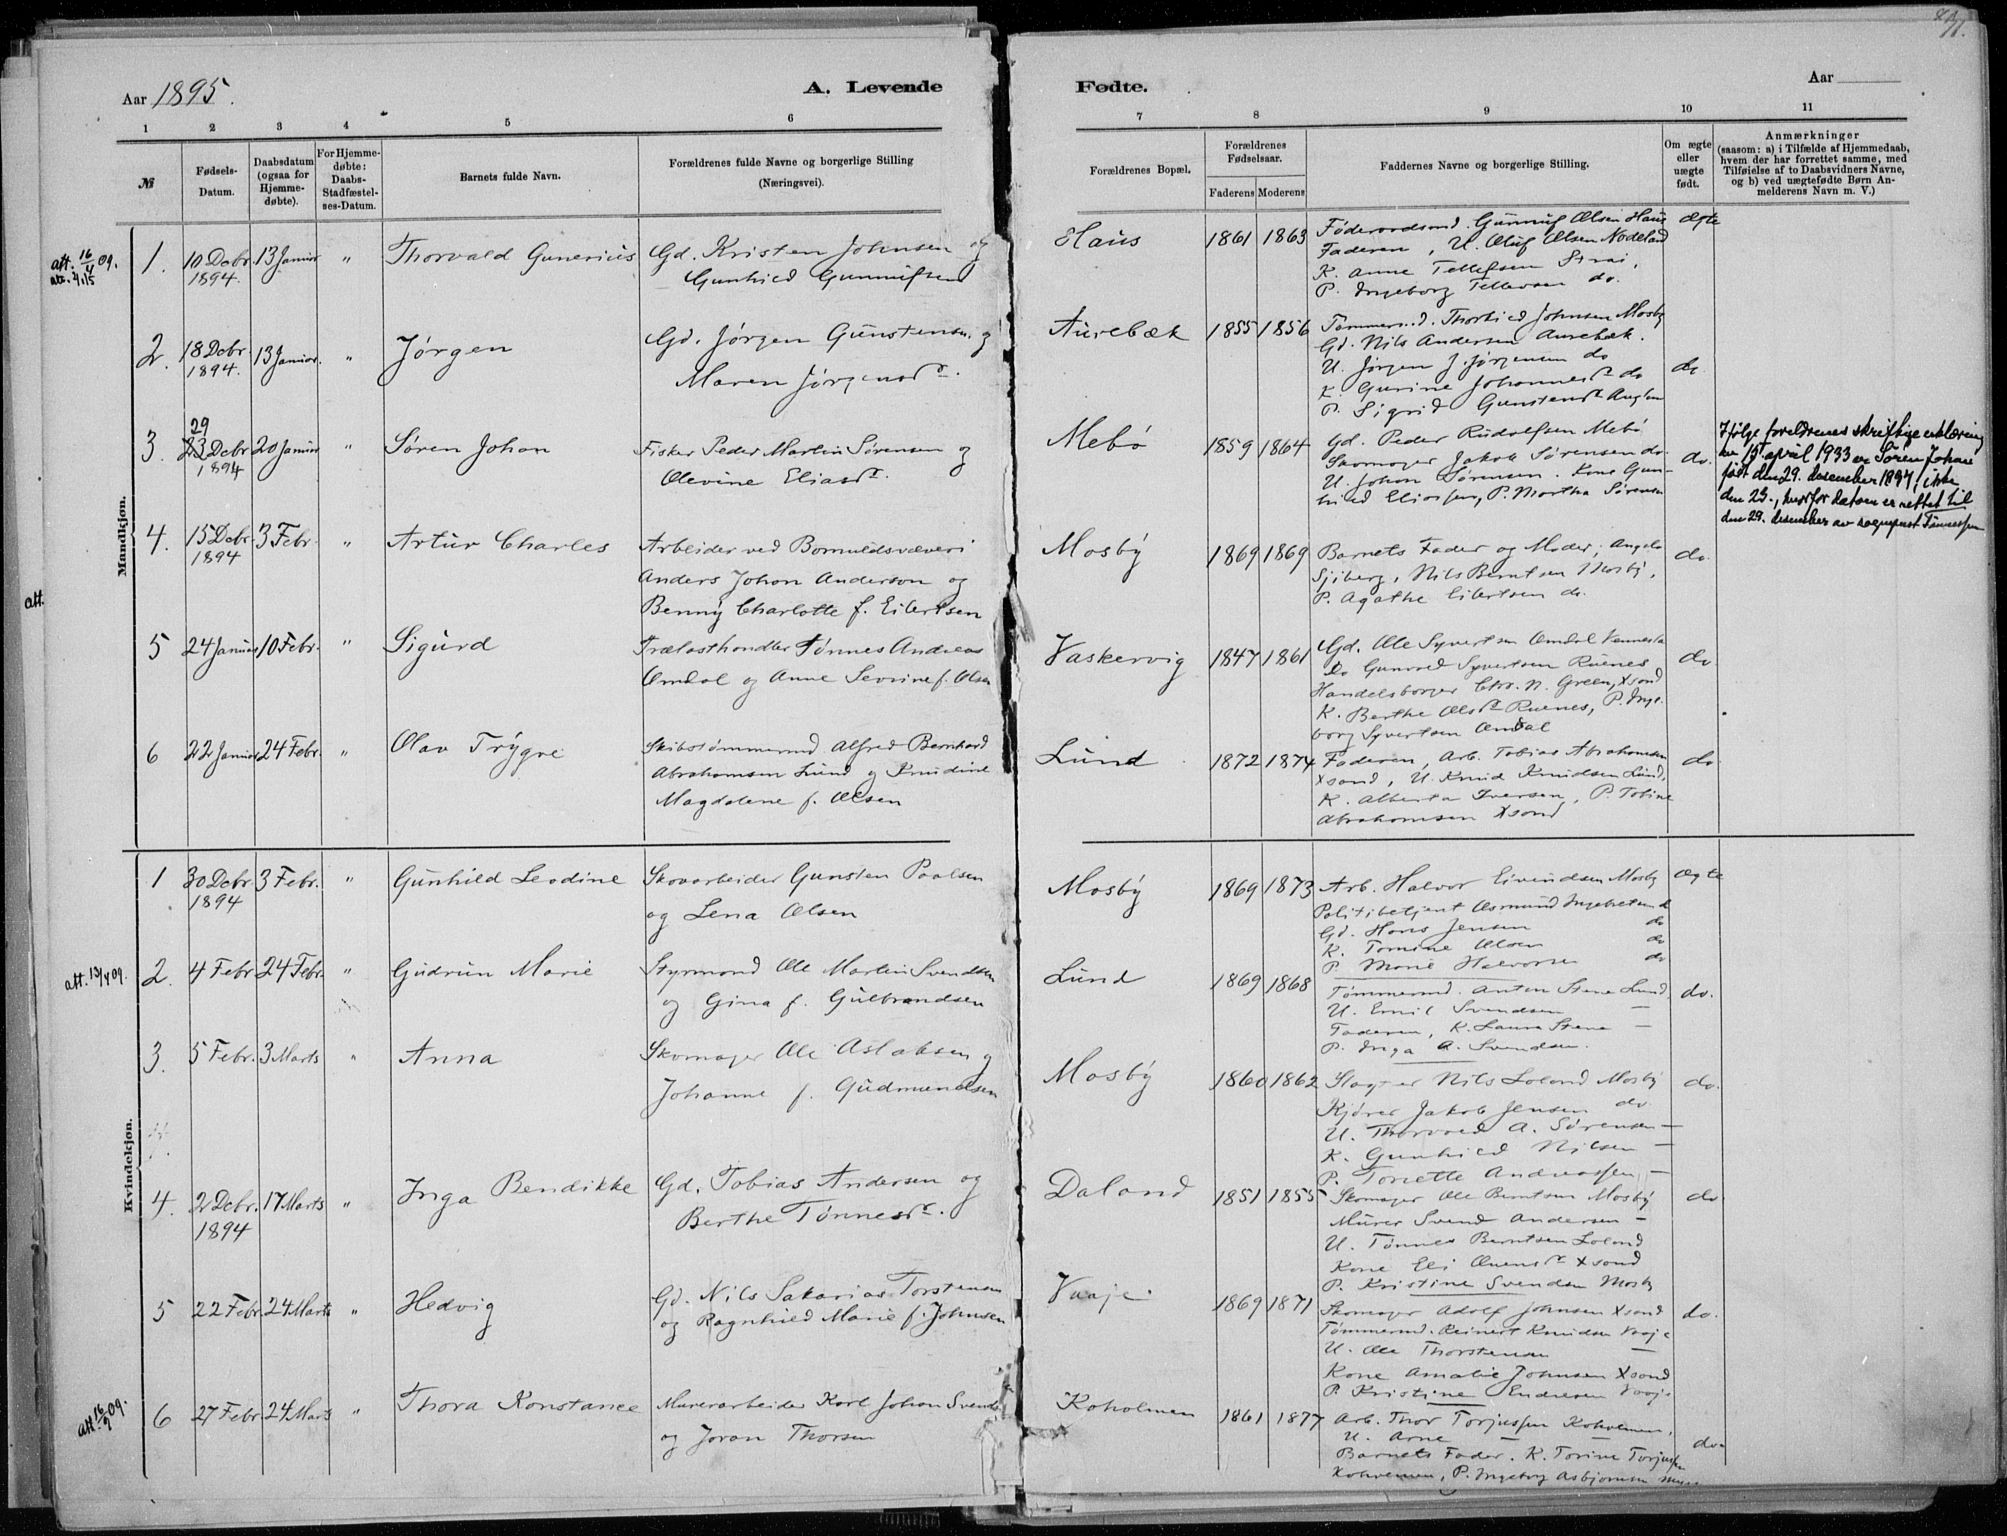 Aar 1895.
A. Levende
1 2 3 4 5 6
№
Fødsels-
Datum.
Daabsdatum
(ogsaa for
Hjemme-
døbte).
For Hjemme-
døbte:
Daabs-
Stadfæstel-
ses-Datum.
Barnets fulde Navn.
Forældrenes fulde Navne og borgerlige Stilling
(Næringsvei).
Mandkjøn.
att. 16/4 09.
1. 10 Debr. 13 Januar " Thorvald Gunerius Gd. Kristen Johnsen og
1894. Gunhild Gunnufsen
2. 18 Debr. 13 Januar. " Jørgen Gd. Jørgen Gunstensen og
1894. Maren Jørgensdr.
29
3. 23 Debr. 20 Januar " Søren Johan Fisker Peder Martin Sørensen og
1894 Olevine Eliasdr.
4. 15 Debr. 3 Febr. " Artur Charles Arbeider ved Bomuldsvæveri
1894 Anders Johan Anderson og
att.
Benny Charlotte f. Eilertsen
5 24 Januar 10 Febr. " Sigurd Trælasthandler Tønnes Andreas
Omdal og Anne Sevrine f. Olsen
6 22 Januar 24 Febr. " Olav Trygve Skibstømmermd Alfred Bernhard
Abrahamsen Lund og Knudine
Magdalene f. Olsen
Kvindekjøn.
1 30 Debr. 3 Febr. " Gunhild Leodine Skovarbeider Gunsten Paalsen
1894 og Lena Olsen
att. 13/4 09.
2. 4 Febr. 24 Febr. " Gudrun Marie Styrmand Ole Martin Svendsen
og Gina f. Gulbrandsen
3. 5 Febr. 3 Marts " Anna Skomager Ole Aslaksen og
Johanne f. Gudmundsen
4. 2 Debr. 17 Marts " Inga Bendikke Gd. Tobias Andersen og
1894 Berthe Tønnesdr.
5 22 Febr. 24 Marts " Hedvig Gd. Nils Sakarias Torstensen
og Ragnhild Marie f. Johnsen
att. 16/9 09.
6 27 Febr. 24 Marts " Thora Konstance Murerarbeider Karl Johan Svends
og Joran Thorsen
71.
Fødte.
Aar
7 8 9 10 11
Forældrenes Bopæl.
Forældrenes
Fødselsaar.
Faderens Moderens
Faddernes Navne og borgerlige Stilling.
Om ægte
eller
uægte
født.
Anmærkninger
(saasom: a) i Tilfælde af Hjemmedaab,
hvem der har forrettet samme, med
Tilføielse af to Daabsvidners Navne,
og b) ved uægtefødte Børn An-
melderens Navn m. V.)
Haus 1861 1863 Føderaadsmd. Gunnuf Olsen Haus ægte
Faderen, U. Oluf Olsen Nodeland
K. Anne Tellefsen Strai,
P. Ingeborg Tellevsen do.
Aurebæk 1855 1856 Tømmermd. Thorbid Johnsen Mosby
Gd. Nils Andersen Aurebæk.
U. Jørgen J. Jørgensen do do
K. Gurine Johannesdr do
P. Sigrid Gunstensdr
Mebø 1859 1864 Gd. Peder Rudolfsen Mebø
Skomager Jakob Sørensen do. do.
U. Johan Sørensen. Kone Gun-
hild Eliassen, P. Martha Sørensen
Ifølge foreldrenes skriftlige erklæring
av 15 april 1933 er Søren Johan
født den 29. desember 1894, ikke
den 23., hvorfor datoen er rettet til
den 29. desember av sogneprest Tønnessen
Mosby 1869 1869 Barnets Fader og Moder, Angela do.
Sjøberg, Nils Berntsen Mosby,
P. Agathe Eilertsen do.
Vaskervig 1847 1861 Gd. Ole Syvertsen Omdal Vennesla do
Do Gunvald Syvertsen Ruenes
Handelsborger Chr. N. Green, Xsand
K. Berthe Olsdr Ruenes, P. Inge-
borg Syvertsen Omdal
Lund 1872 1874 Faderen, Arb. Tobias Abrahamsen do.
Xsand, U. Knud Knudsen Lund,
K. Alberta Iversen, P. Tobine
Abrahamsen Xsand
Mosby 1869 1873 Arb. Halvor Eivindsen Mosby ægte
Politibetjent Osmund Ingebretsen do
Gd. Hans Jensen do
K. Tomine Olsen do
P. Marie Halvorsen do
Lund 1869 1868 Tømmermd. Anton Stene Lund, do.
U. Emil Svendsen —
Faderen, K. Laura Stene —
P. Inga A. Svendsen.
Mosby 1860 1862 Slagter Nils Loland Mosby do.
Kjører Jakob Jensen do.
U. Thorvald A. Sørensen —
K. Gunhild Nilsen —
P. Tonette Andreassen, —
Daland 1851 1855 Skomager Ole Berntsen Mosby do
Murer Svend Andersen —
U. Tønnes Berntsen Loland
Kone Eli Xsand
P. Kristine Svendsen Mosby
Vraje. 1869 1871 Skomager Adolf Johnsen Xsand do.
Tømmermd. Reinert Knudsen Vraje
U. Ole Thorstensen —
Kone Amalie Johnsen Xsand
P. Kristine Endresen Vraje
Koholmen 1861 1877 Arb. Thor Torjussen Koholmen, do.
U. Arne — —
Barnets Fader. K. Torine Torjussen
Koholmen, P. Ingeborg Asbjørnsen